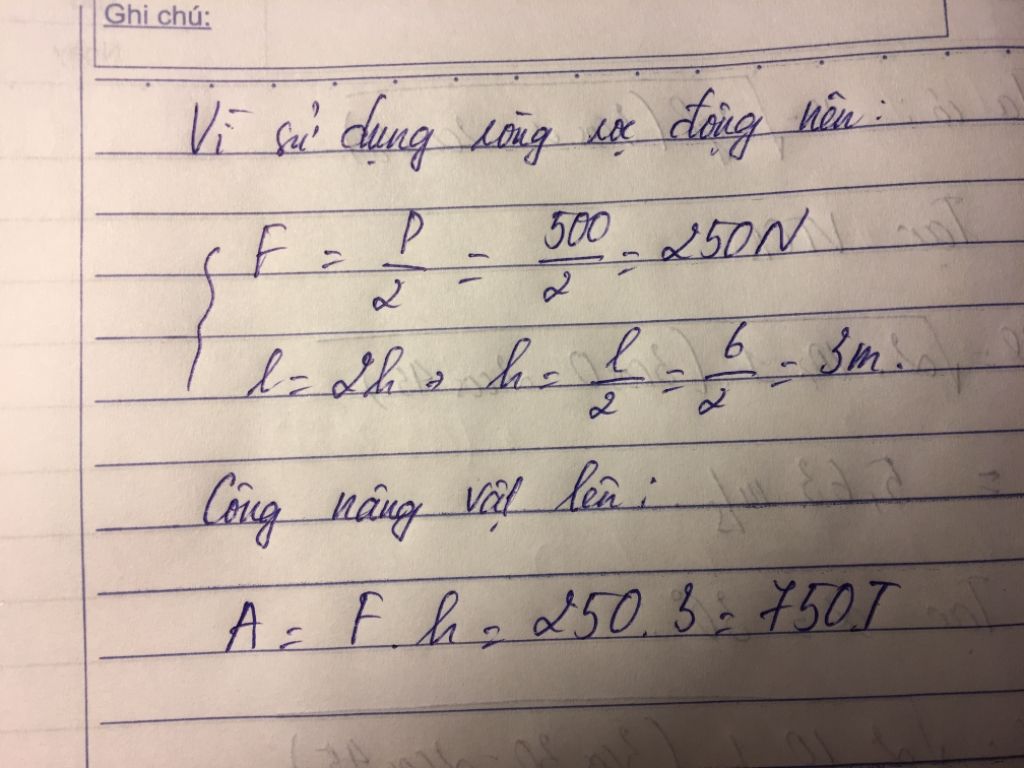 Ghi chú:
Vì sử dụng ròng rọc động nên:
F = P/2 = 500/2 = 250N
l = 2h → h = l/2 = 6/2 = 3m.
Công nâng vật lên:
A = F.h = 250.3 = 750J